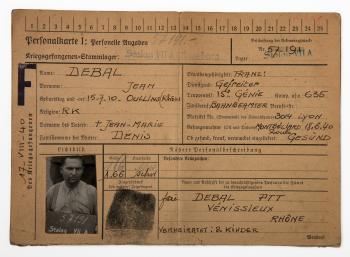 1 2 3 4 5 6 7 8 9 10 11 12 13 14 15 16 17 18 19 20 21 22 23 24 25
Personalkarte I: Personelle Angaben
Kriegsgefangenen-Stammlager: Stalag VII A
57191
Beschriftung der Erkennungsmarke
Nr. 57191
Lager: Stalag VII A
F
Des Kriegsgefangenen
17-VIII-40
Name: DEBAL
Vorname: JEAN
Geburtstag und -ort 15.7.10 OULLINS RHÔNE
Religion: RK
Vorname des Vaters: + JEAN-MARIE
Familienname der Mutter: DENIS
Staatsangehörigkeit: FRANZ!
Dienstgrad: Gefreiter
Truppenteil: 15e GENIE Komp. usw.: 635
Zivilberuf: BAHNBEAMTER
Matrikel Nr. 304 LYON
Gefangennahme (Ort und Datum): MONTBELIARD 18.6.40
Ob gesund, krank, verwundet eingeliefert: GESUND
Lichtbild
Nähere Personalbeschreibung
Größe
Haarfarbe
Besondere Kennzeichen:
1,66
57191
Stalag VII A
Name und Anschrift der zu benachrichtigenden Person in der Heimat des Kriegsgefangenen
DEBAL
VÉNISSIEUX
RHÔNE
VERHEIRATET: 2 KINDER
Wenden!